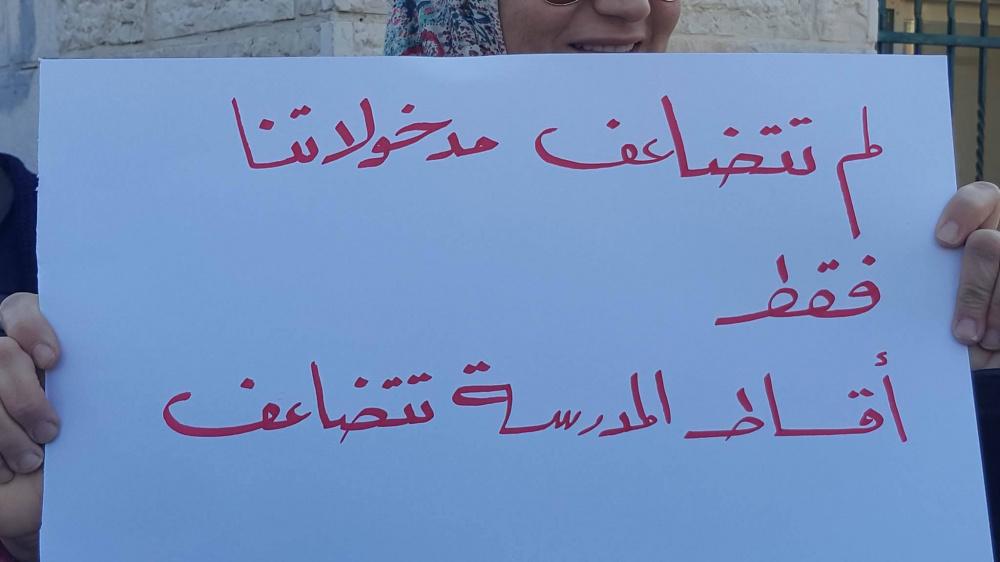 لم تتضاعف مدخولاتنا
فقط
أقساط المدرسة تتضاعف